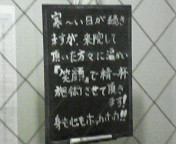 寒〜い日が続き
ますが、来院して
頂いた方々に温かい
『笑顔』で精一杯
させて頂き
ます!
身も心もホッカホカ!!